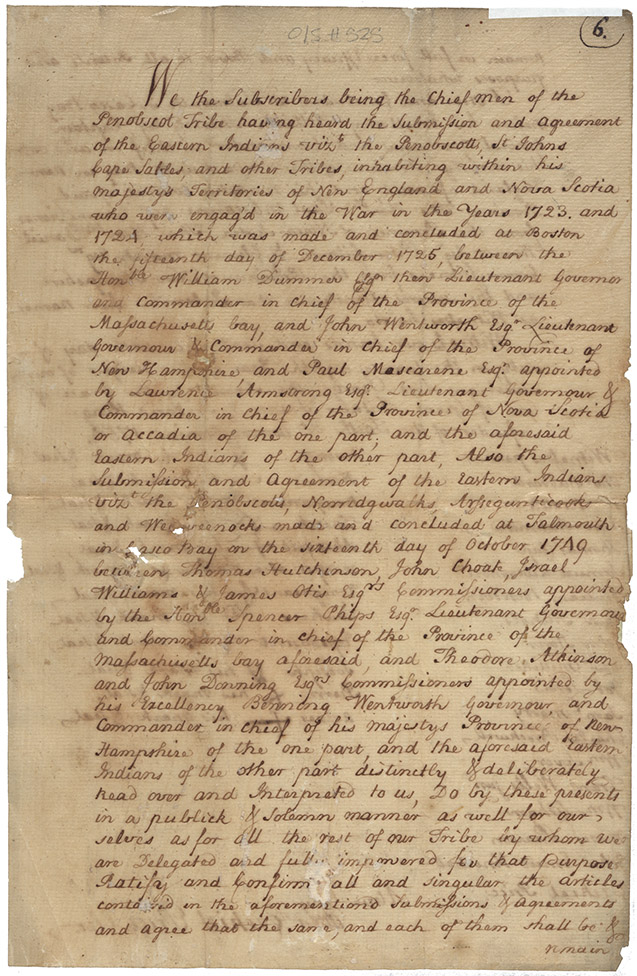 6.
We the Subscribers being the Chief men of the
Penobscot Tribe having heard the Submission and Agreement
of the Eastern Indians vizt the Penobscotts, St Johns
Cape Sables, and other Tribes, inhabiting within his
Majestys Territories of New England and Nova Scotia
who were engag'd in the War in the Years 1723. and
1724, which was made and concluded at Boston
the fifteenth day of December 1725, between the
Honble William Dummer Esqr then Lieutenant Governor
and Commander in Chief of the Province of the
Massachusetts bay, and John Wentworth Esqr Lieutenant
Governour & Commander in Chief of the Province of
New Hampshire and Paul Mascarene Esqr appointed
by Lawrence Armstrong Esqr Lieutenant Governour &
Commander in Chief of the Province of Nova Scotia
or Accadia of the one part; and the aforesaid
Eastern Indians of the other part, Also the
Submission and Agreement of the Eastern Indians
vizt the Penobscots, Norredgwalks, Arsegunticooks
and Weweenocks made and concluded at Falmouth
in Casco bay on the sixteenth day of October 1749
between Thomas Hutchinson, John Choat, Israel
Williams & James Otis Esqrs Commissioners appointed
by the Honble Spencer Phips Esqr Lieutenant Governour
and Commander in chief of the Province of the
Massachusetts bay aforesaid, and Theodore Atkinson
and John Downing Esqrs Commissioners appointed by
his Excellency Benning Wentworth Governour, and
Commander in chief of his majestys Province of New
Hampshire of the one part, and the aforesaid Eastern
Indians of the other part distinctly & deliberately
read over and Interpreted to us, Do by these presents
in a publick & Solemn manner as well for our
selves as for all the rest of our Tribe by whom we
are Delegated and fully impowered for that purpose
Ratify and Confirm all and singular the articles
contained in the aforementiond Submissions & Agreements
and agree that the same, and each of them shall be &
remain